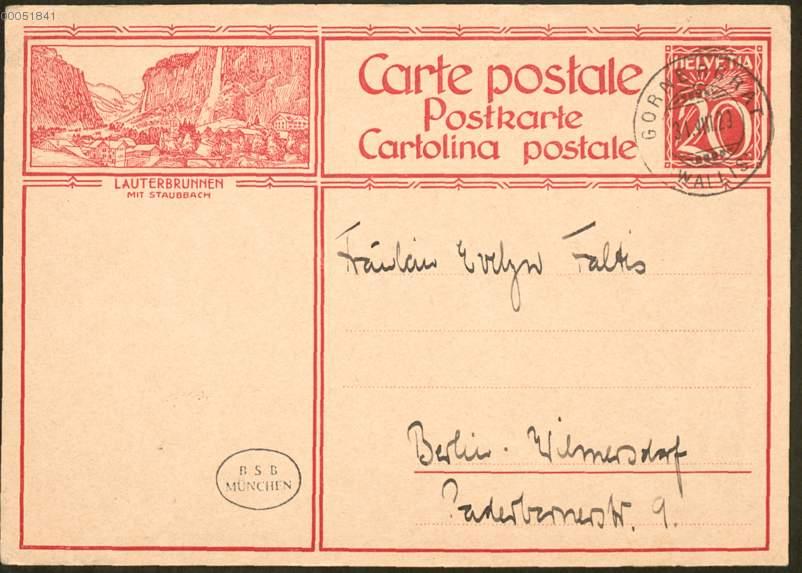 00051841
Carte postale
Postkarte
Cartolina postale
HELVETIA
20
GORNERGRAT
WALLIS
LAUTERBRUNNEN
MIT STAUBBACH
Fräulein Evelyn Faltis
Berlin-Wilmersdorf
Paderbornerstr. 9.
B S B
MÜNCHEN